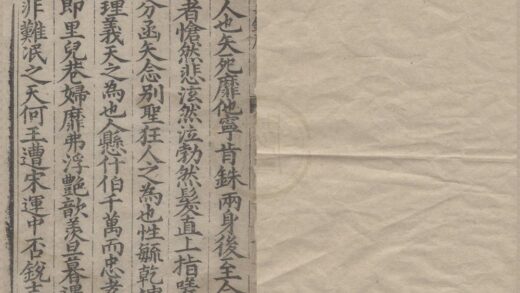 人也矢死靡他寧肯銖兩身後至今
者愴然悲泫然泣勃然髮直上指嗟
分函矢念別聖狂人之為也性毓乾坤
理義天之為也人懸仟伯千萬而忠孝
即里兒巷婦靡弗浮艷歆羨旦暮遇
非難泯之天何王遭宋運中否銳志